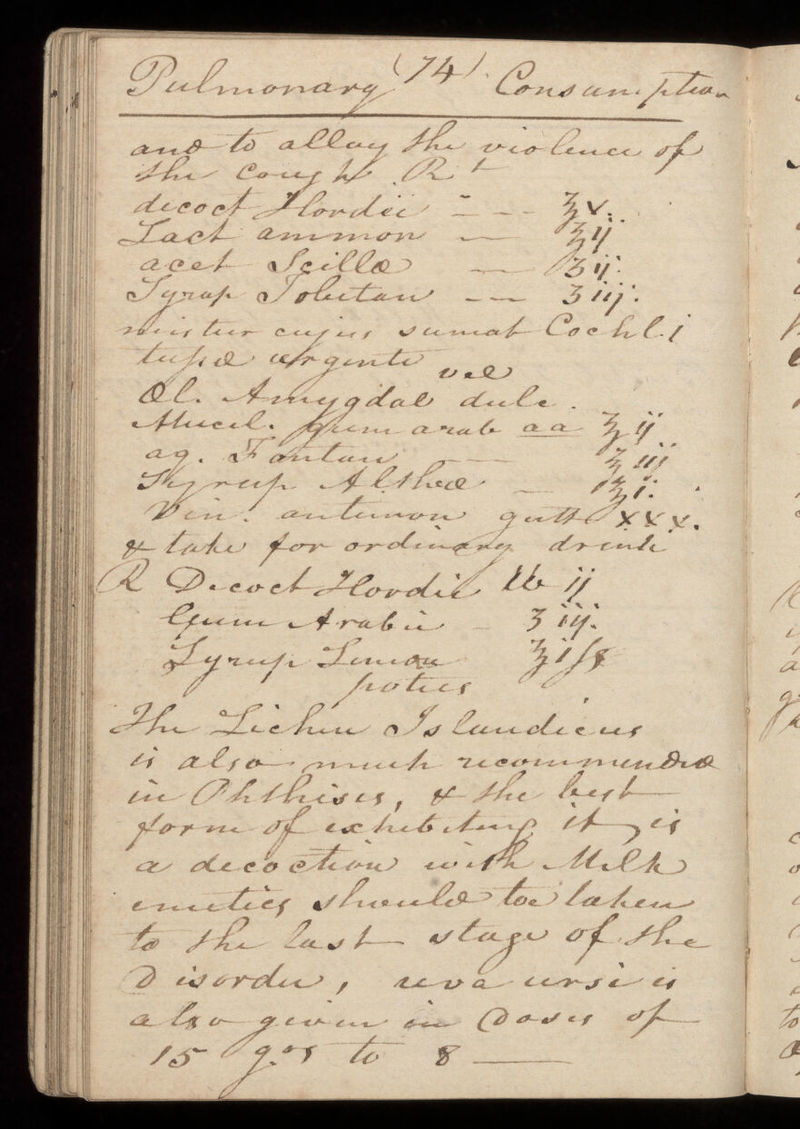 Pulmonary (74) Consumption
and to allay the violence of
the Cough. Rt
decoct Hordei - - - ℥v.
Lact ammon — ℥ij
acet Scillæ — ʒij.
Syrup Tolutan - - ʒiij.
mistur cujus sumat Cochl. i
tussæ urgente
vel
Ol. Amygdal dulc.
Mucil. gum arab aa ℥ij
aq. Fontan — ℥iij
Syrup Altheæ — ℥i.
Vin. antimon gutt xxx.
& take for ordinary drink
R Decoct Hordei lb ij
Gum Arabic - ʒiij.
Syrup Limon ℥iss
potus
The Lichen Islandicus
is also much recommended
in Phthisis, & the best
form of exhibiting it, is
a decoction with Milk
emetics should be taken
to the last stage of the
Disorder, uva ursi is
also given in Doses of
15 grs to 8 —